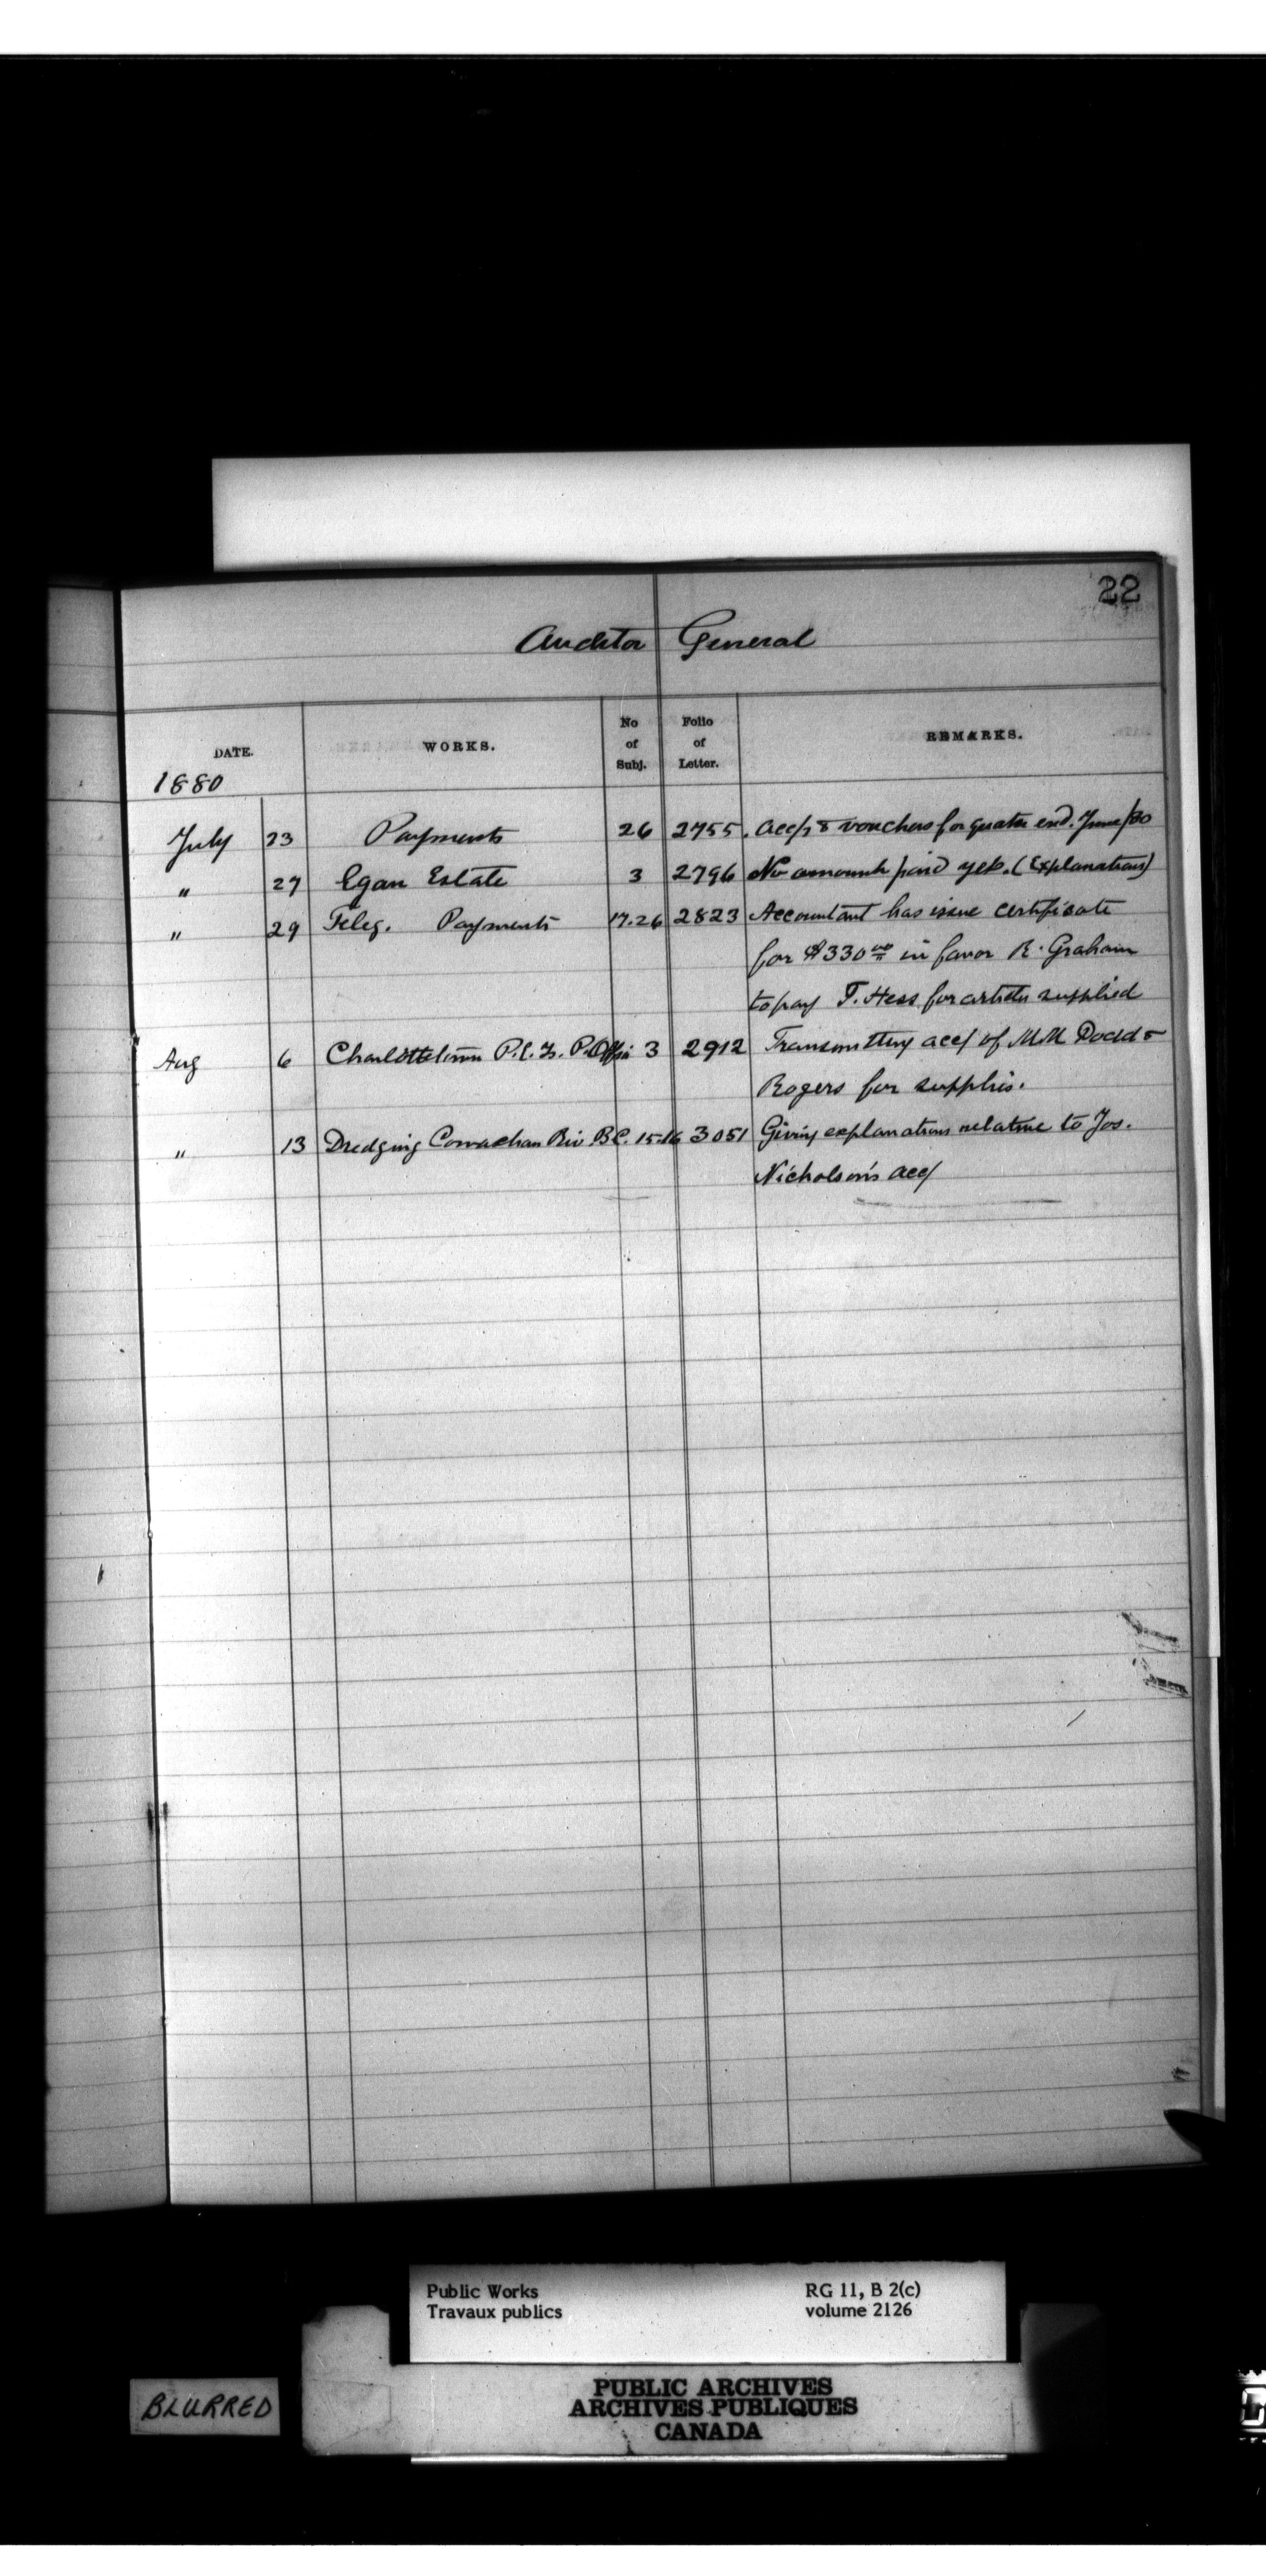 22
Auditor General
DATE. WORKS. No of Subj. Folio of Letter. REMARKS.
1880
July 23 Payments 26 2755. Acc/s & vouchers for quater end. June/80
" 27 Egan Estate 3 2796 No amount paid yet. (Explanations)
" 29 Teleg. Payments 17.26 2823 Accountant has issue certificate
for $330 00 in favor R. Graham
to pay T. Hess for articles supplied
Aug 6 Charlottetown P.E.I. P. Office 3 2912 Transmitting acc/ of MM Dodd &
Rogers for supplies.
" 13 Dredging Cowachan Riv. B.C. 15.16 3051 Giving explanations relative to Jos.
Nicholson's acc/
Public Works RG 11, B 2(c)
Travaux publics volume 2126
BLURRED
PUBLIC ARCHIVES
ARCHIVES PUBLIQUES
CANADA